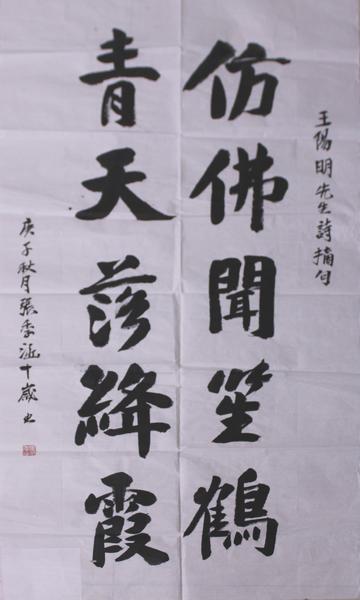 王陽明先生詩摘句
仿佛聞笙鶴
青天落絳霞
庚子秋月張季涵十歲书